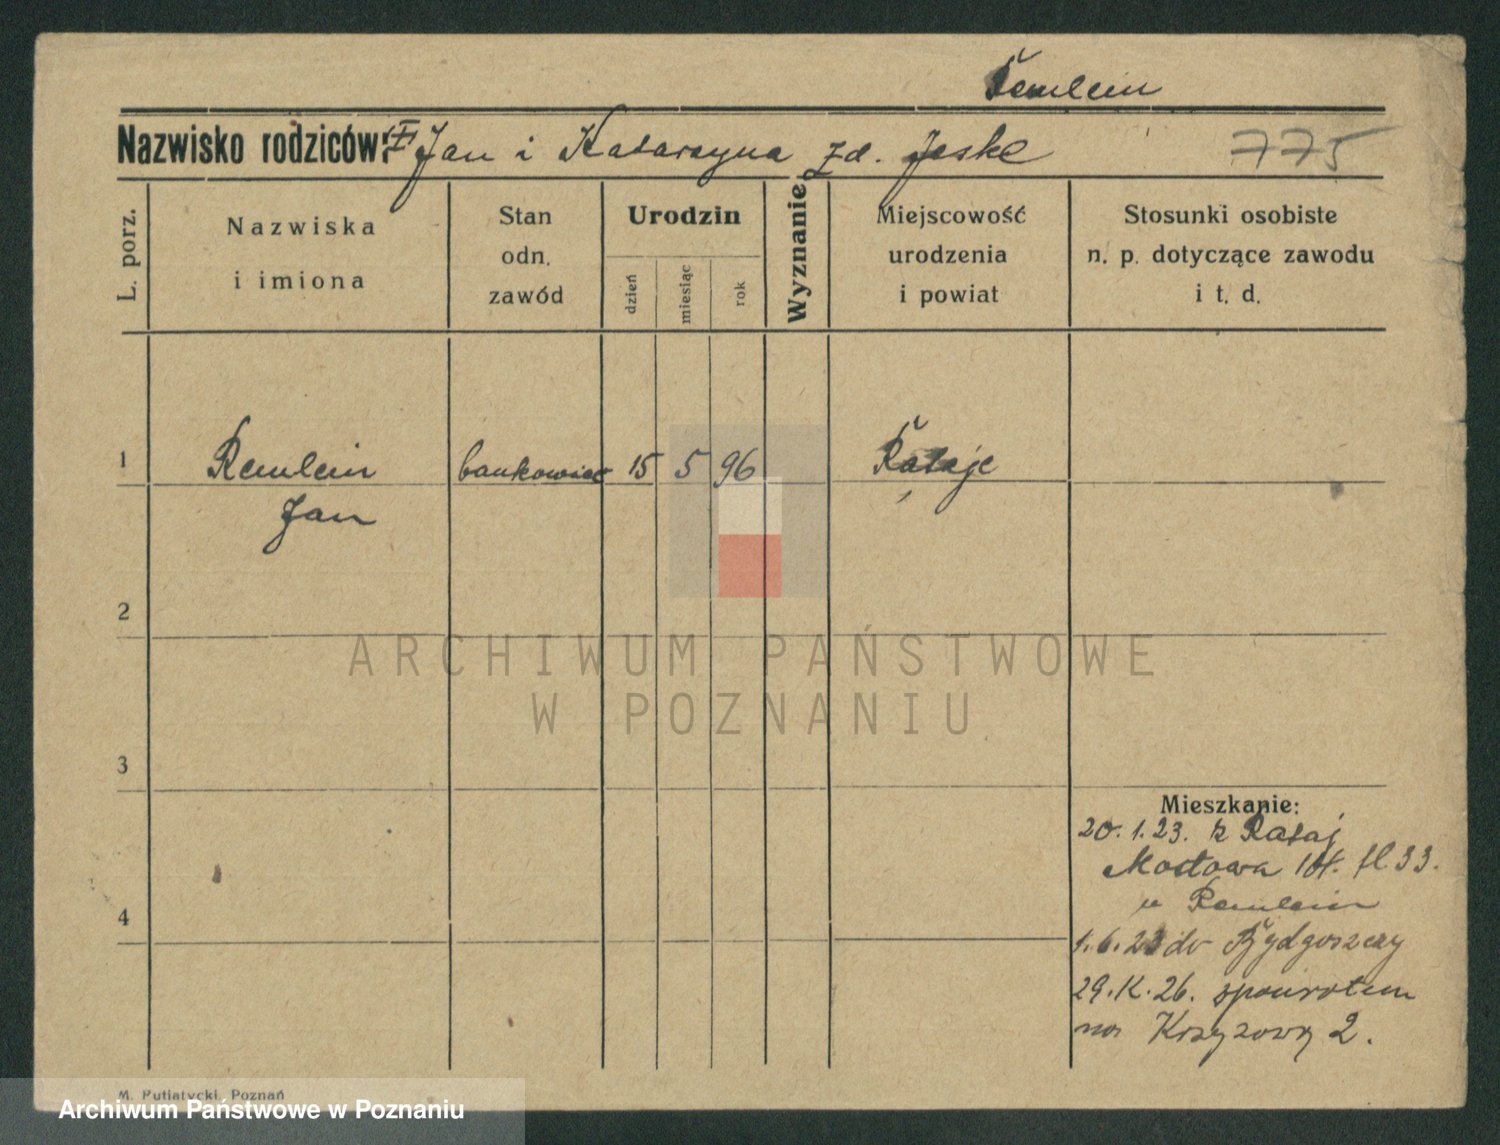 Remlein
Nazwisko rodziców: Jan i Katarzyna zd. Jeske 775
L. porz.
Nazwiska
i imiona
Stan
odn.
zawód
Urodzin
dzień
miesiąc
rok
Wyznanie
Miejscowość
urodzenia
i powiat
Stosunki osobiste
n. p. dotyczące zawodu
i t. d.
1 Remlein bankowiec 15 5 96 Rataje
Jan
2
3
4
Mieszkanie:
20.1.23. z Rataj
Mostowa 33.
u Remlein
1.6.23 do Bydgoszczy
26. spowrotem
na Krzyzowy 2.
M. Putiatycki, Poznań
ARCHIWUM PAŃSTWOWE
W POZNANIU
Archiwum Państwowe w Poznaniu